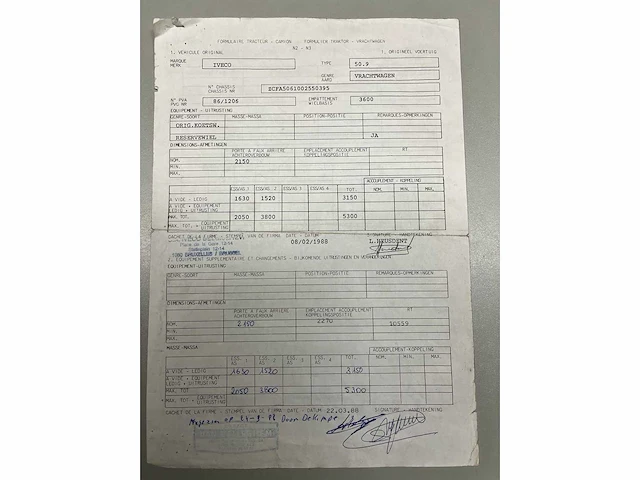 FORMULAIRE TRACTEUR - CAMION FORMULIER TRAKTOR - VRACHTWAGEN
N2 - N3
1. VEHICULE ORIGINAL 1. ORIGINEEL VOERTUIG
MARQUE MERK IVECO TYPE 50.9
GENRE AARD VRACHTWAGEN
N° CHASSIS CHASSIS NR ZCFA5061002550395
N° PVA PVG NR 86/1206 EMPATTEMENT WIELBASIS 3600
EQUIPEMENT - UITRUSTING
GENRE-SOORT MASSE-MASSA POSITION-POSITIE REMARQUES-OPMERKINGEN
ORIG.KOETSW.
RESERVEWIEL JA
DIMENSIONS-AFMETINGEN
PORTE A FAUX ARRIERE ACHTEROVERBOUW EMPLACEMENT ACCOUPLEMENT KOPPELINGSPOSITIE RT
NOM. 2150
MIN.
MAX.
ACCOUPLEMENT - KOPPELING
ESS/AS 1 ESS/AS 2 ESS/AS 3 ESS/AS 4 TOT. NOM. MIN. MAX.
A VIDE - LEDIG 1630 1520 3150
A VIDE + EQUIPEMENT
LEDIG + UITRUSTING
MAX. TOT. 2050 3800 5300
MAX. TOT. + EQUIPEMENT UITRUSTING
CACHET DE LA FIRME - STEMPEL VAN DE FIRMA DATE - DATUM SIGNATURE - HANDTEKENING
08/02/1988 L.HEUSDENT
2. EQUIPEMENT SUPPLEMENTAIRE ET CHANGEMENTS - BIJKOMENDE UITRUSTINGEN EN VERANDERINGEN
EQUIPEMENT-UITRUSTING
GENRE-SOORT MASSE-MASSA POSITION-POSITIE REMARQUES-OPMERKINGEN
DIMENSIONS-AFMETINGEN
PORTE A FAUX ARRIERE ACHTEROVERBOUW EMPLACEMENT ACCOUPLEMENT KOPPELINGSPOSITIE RT
NOM. 2150 2270 10559
MIN.
MAX.
MASSE-MASSA
ESS. AS. 1 ESS. AS. 2 ESS. AS. 3 ESS. AS. 4 TOT. ACCOUPLEMENT-KOPPELING
NOM. MIN. MAX.
A VIDE - LEDIG 1630 1520 3150
A VIDE + EQUIPEMENT
LEDIG + UITRUSTING
MAX. TOT. 2050 3800 5300
MAX. TOT. + EQUIPEMENT UITRUSTING
CACHET DE LA FIRME - STEMPEL VAN DE FIRMA DATE - DATUM 22.03.88 SIGNATURE - HANDTEKENING